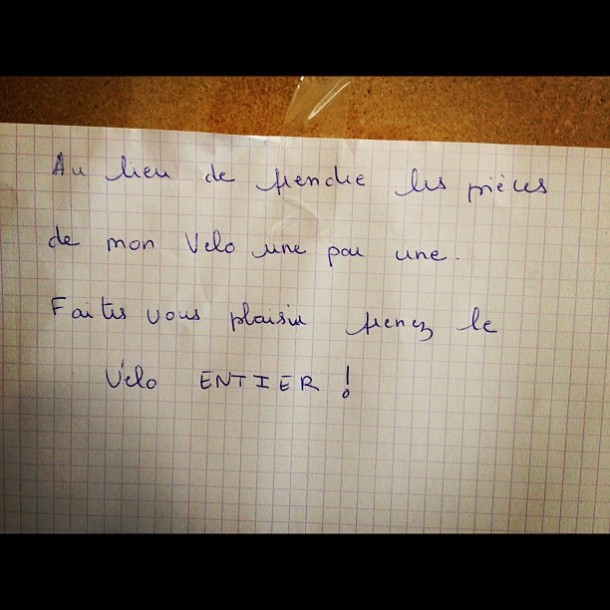 Au lieu de prendre les pièces
de mon Velo une par une.
Faites vous plaisir prenez le
Vélo ENTIER !